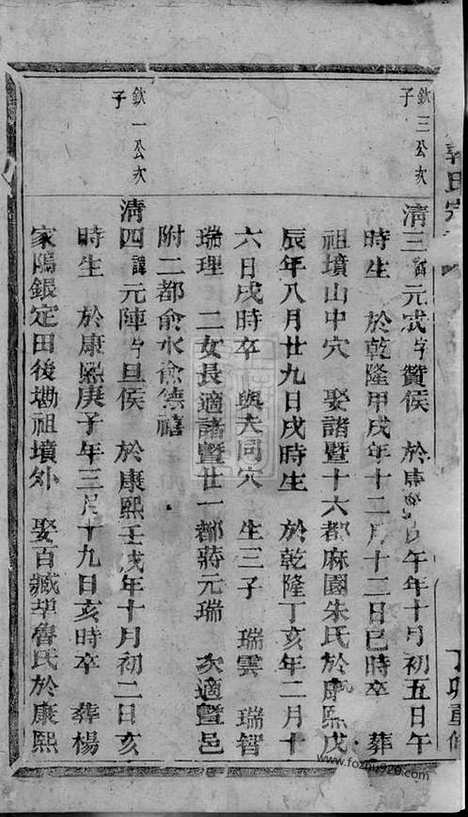 氏宗
丁卯重修
欽三公次子
清三諱元 字贊侯 於康 午年十月初五日午
時生 於乾隆甲戌年十二月十二日巳時卒 葬
祖墳山中穴 娶諸暨十六都麻園朱氏於康熙戊
辰年八月廿九日戌時生 於乾隆丁亥年二月十
六日戌時卒 與夫同穴 生三子 瑞雲 瑞智
瑞理 二女長適諸暨廿一都蔣元瑞 次適暨邑
附二都俞水俞德禧
欽一公次子
清四諱元陣字旦侯 於康熙壬戌年十月初二日亥
時生 於康熙庚子年三月十九日亥時卒 葬楊
家隖銀定田後磡祖墳外 娶百藏 魯氏於康熙
www.fozhu920.com